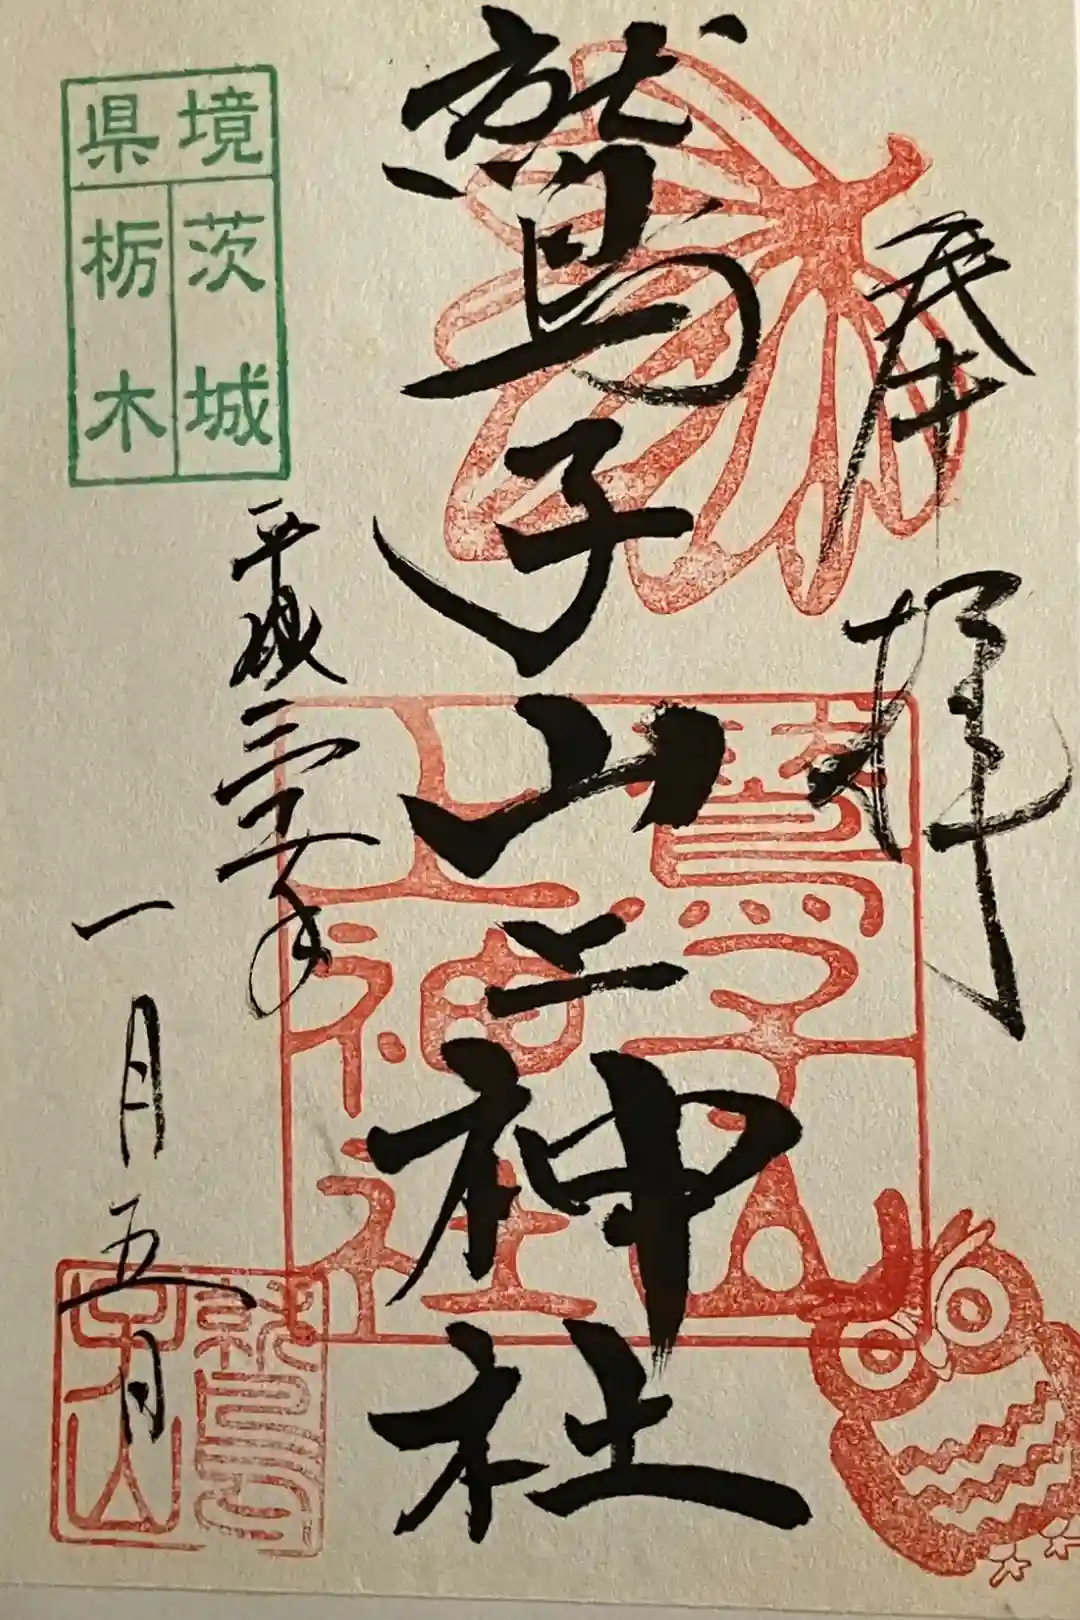 奉拝
鷲子山上神社
平成三十一年
一月五日
県境
茨城
栃木
鷲子山
上神社
鷲
子山